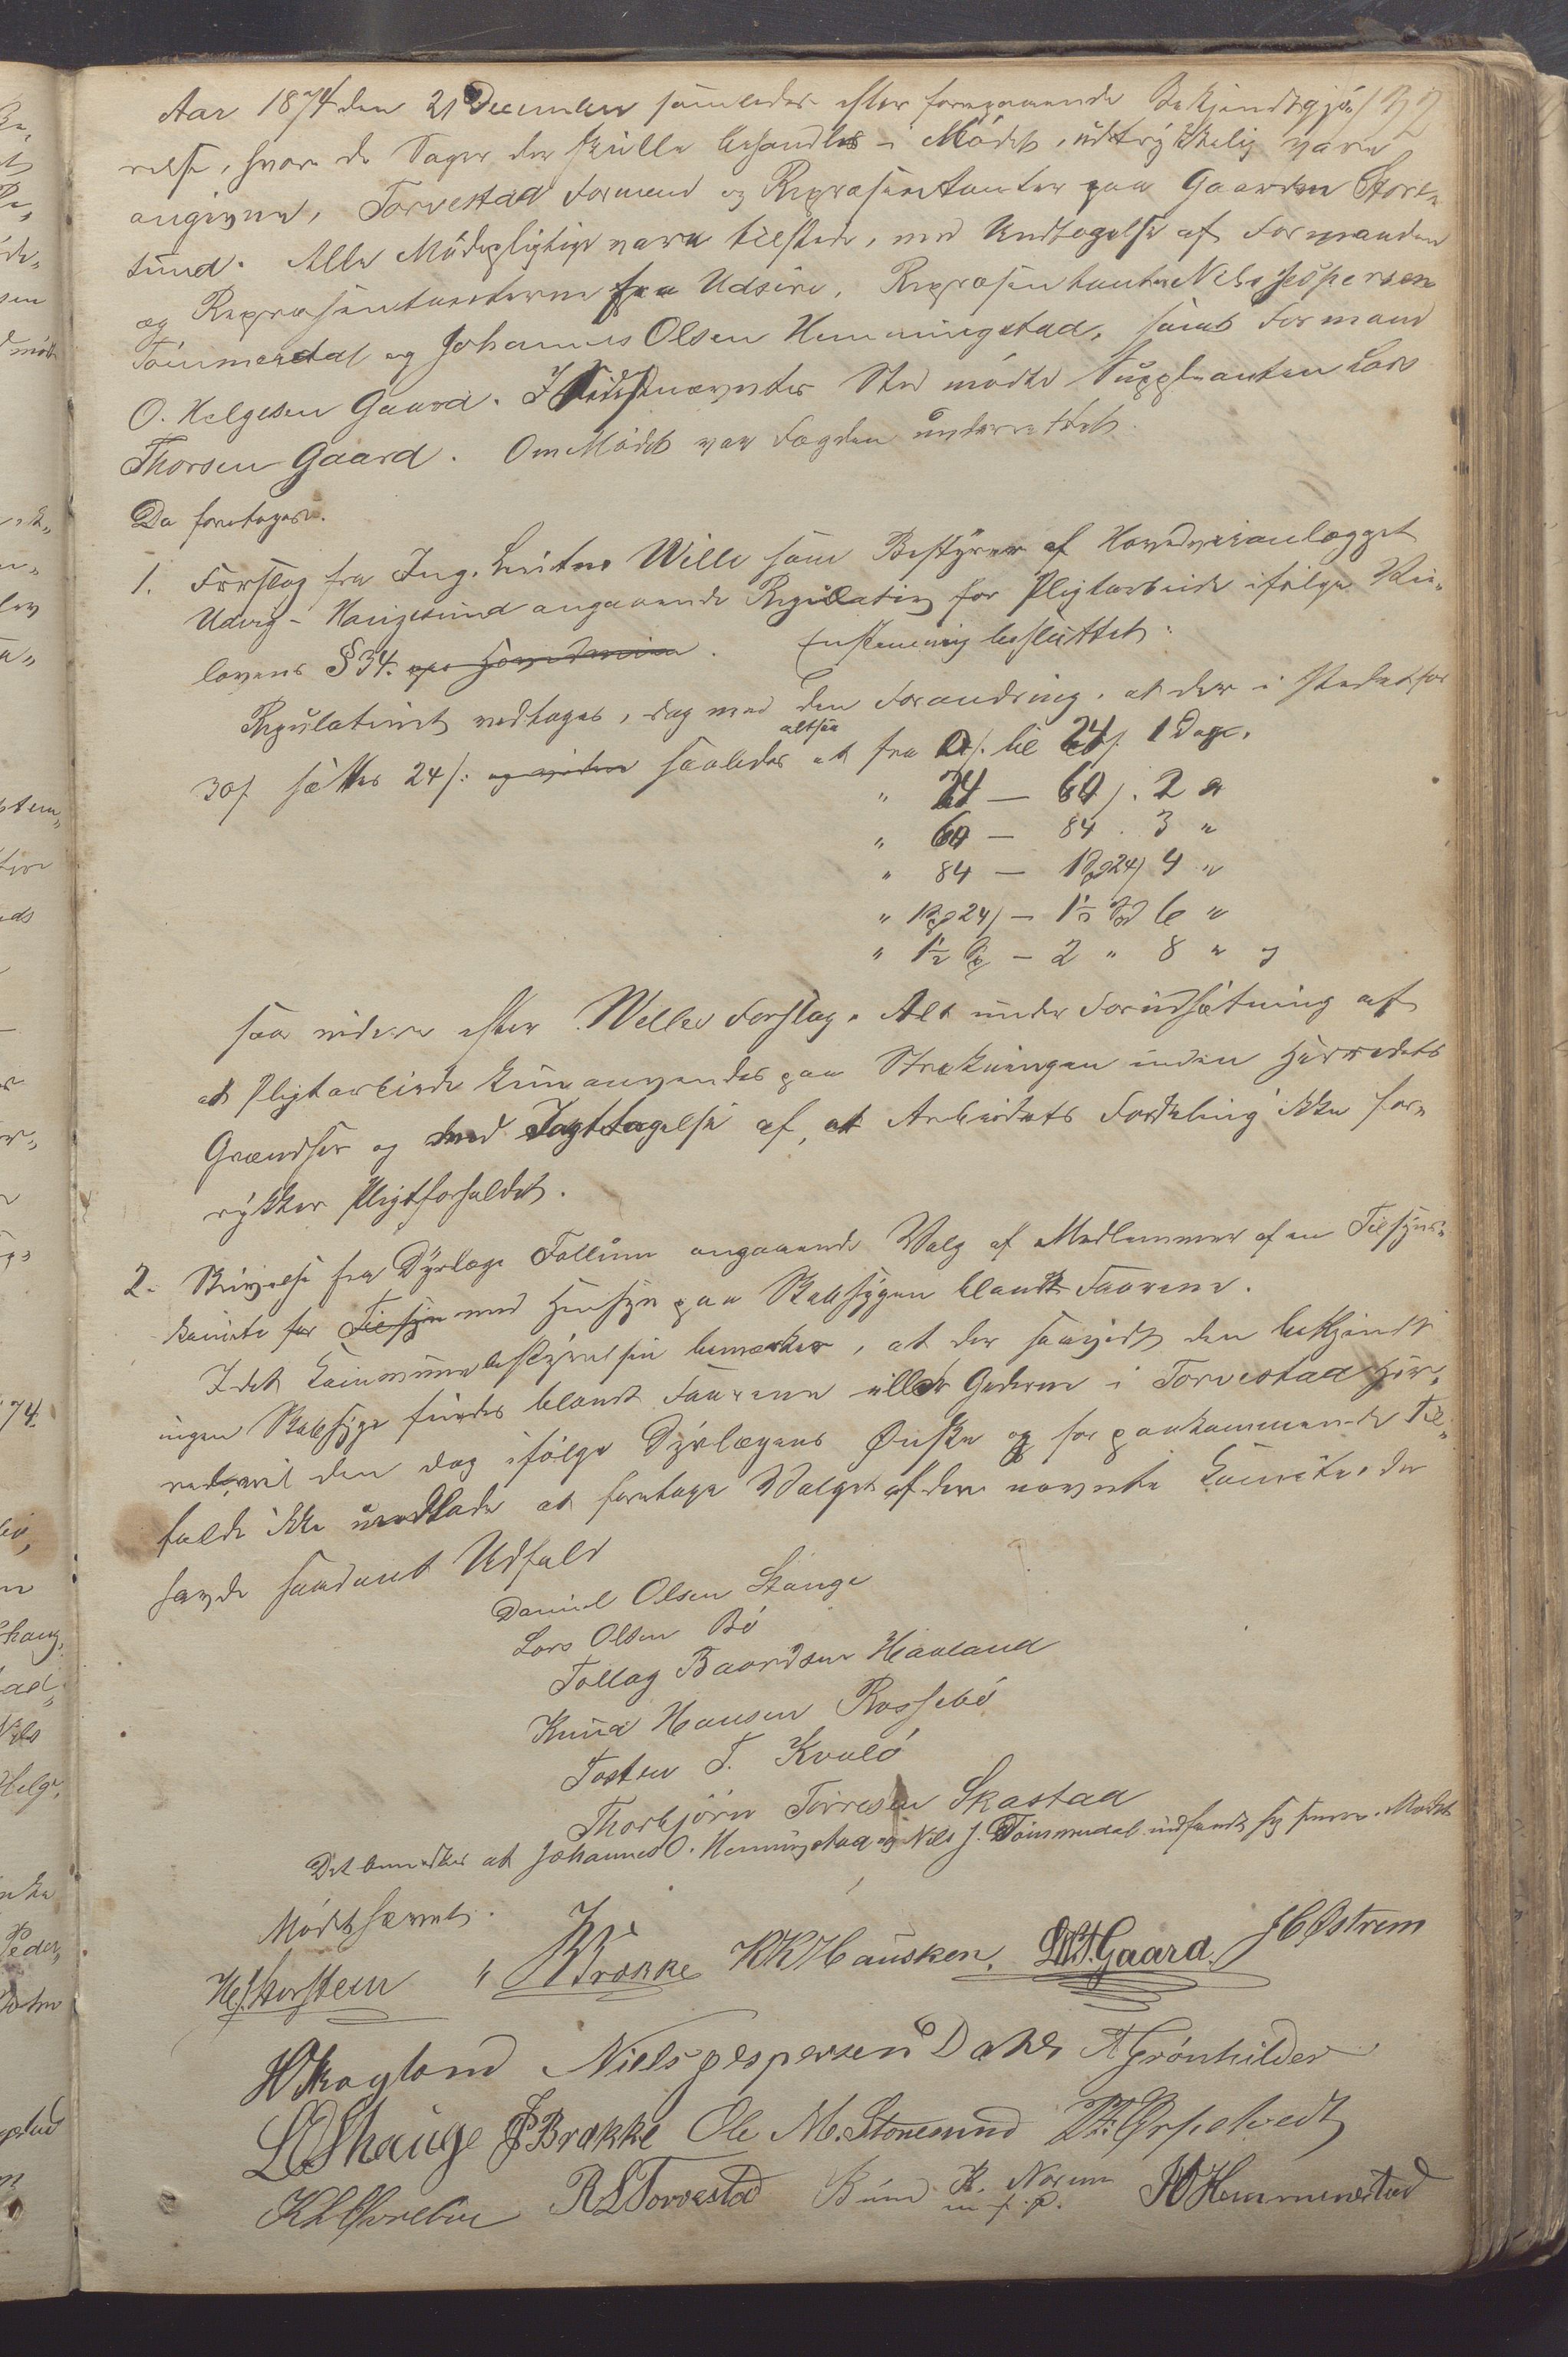 Aar 1874 den 21 December samledes efter foregaaende Bekjendtgjö-
relse, hvori de Sager der skulle behandles i Mödet, udtrykkelig vare
angivne, Torvestad Formænd og Repræsentanter paa Gaarden Store-
sund. Alle Mödepligtige vare tilstede, med Undtagelse af Formanden
og Repræsentanterne fra Udsire, Repræsentanter Nels Jespersen
Tömmerdal og Johannes Olsen Hemmingstad, samt Formand
O. Helgesen Gaard. I Sidstnævntes Sted mödte Suppleanten Lars
Thorsen Gaard. Om Mödet var Fogden underrettet.
Da foretoges.
1. Forslag fra Ing. Leitn. Wille som Bestyrer af Hovedveianlægget
Udvig - Haugesund angaaende Regulativ for Pligtarbeide ifölge Vei-
lovens § 34. Enstemmig besluttet:
Regulativet vedtages, dog med den Forandring, at der i Stedet for
30 s. sættes 24 s. og videre saaledes altsaa at fra 0 s. til 24 s. 1 Dage.
" 24 — 60 s. 2 "
" 60 — 84 . 3 "
" 84 — 1 Spd 24 s 4 "
" 1 Spd 24 s — 1½ Spd 6 "
" 1½ Sp — 2 " 8 " og
saa videre efter Willes Forslag. Alt under Forudsætning af
at Pligtarbeide kun anvendes paa Strækningen inden Herredets
Grændser og med Iagttagelse af, at Arbeidets Fordeling ikke for-
rykker Pligtforholdet.
2. Skrivelse fra Dyrlæge Follum angaaende Valg af Medlemmer af en Tilsyns-
komite for Tilsyn med Hensyn paa Skabsygen blandt Faarene.
Idet Kommunebestyrelsen bemærker, at der saavidt den bekjendt
ingen Skabsyge findes blandt Faarene eller Gederne i Torvestad Her-
red, vil den dog ifölge Dyrlægens Ønske og for paakommende Til-
fælde ikke undlade at foretage Valget af den nævnte Komite, der
havde saadant Udfald
Daniel Olsen Stange
Lars Olsen Bö
Tollag Baardsen Haaland
Knud Hansen Rossebö
Tosten T. Kvalö
Thorbjörn Torresen Skastad
Det bemærkes at Johannes O. Hemmingstad og Nils J. Tömmerdal indfandt sig senere i Mödet
Mödet hævet.
K Brække KKHausken. LT.Gaard. JCØstrem
HSkogland Niels Jespersen Dahle A Grönhilder
LOShauge JSBrække Ole M. Storesund
RLTorvestad K. Norum
m. f. p. JOHemmenstad